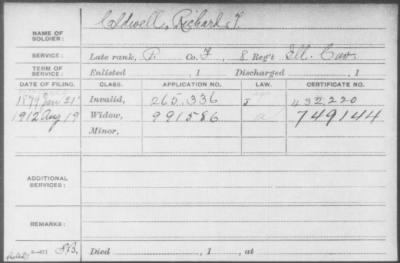 NAME OF SOLDIER: Caldwell, Richard T.
SERVICE: Late rank, P. Co. F, 8 Reg't Ill. Cav.
TERM OF SERVICE: Enlisted , 1 Discharged , 1
DATE OF FILING. CLASS. APPLICATION NO. LAW. CERTIFICATE NO.
1879 Jan 21 Invalid, 265.336 432.220
1912 Aug 19 Widow, 991586 749144
Minor,
ADDITIONAL SERVICES:
REMARKS:
Died , 1 , at